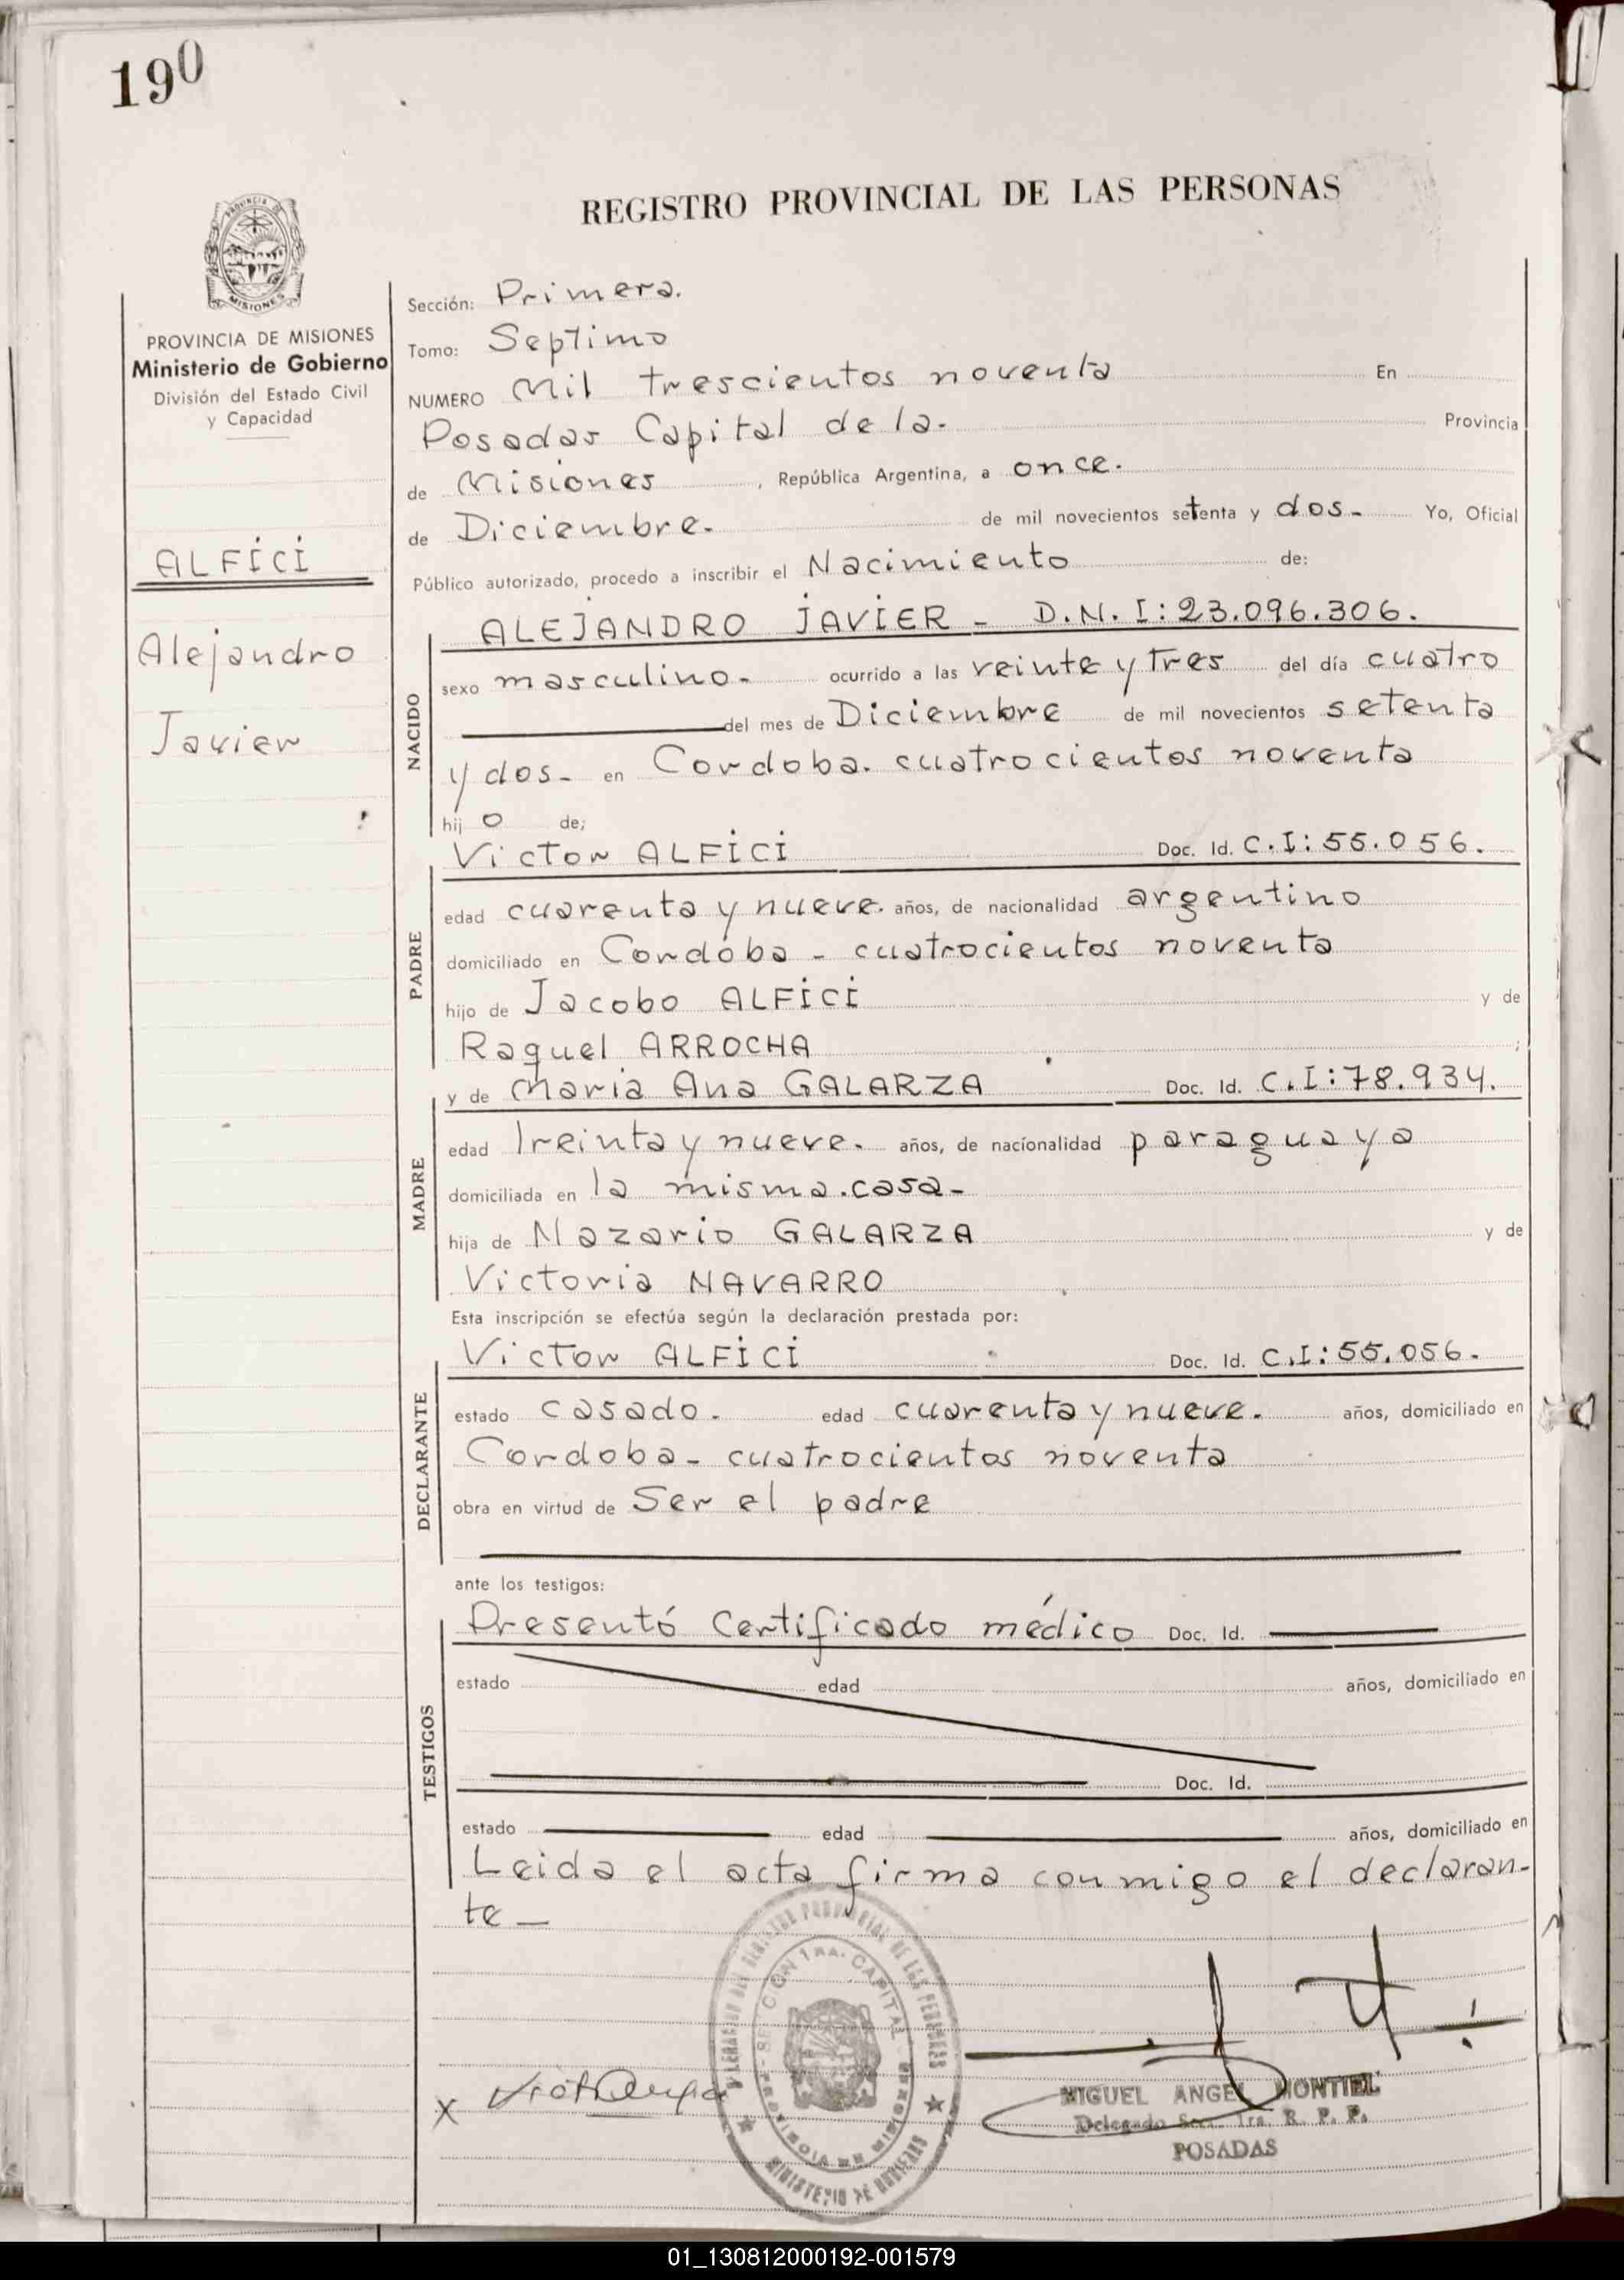 190
REGISTRO PROVINCIAL DE LAS PERSONAS
MISIONES
PROVINCIA DE MISIONES
Ministerio de Gobierno
División del Estado Civil
y Capacidad
ALFICI
Alejandro
Javier
Sección: Primera.
Tomo: Septimo
NUMERO Mil trescientos noventa En
Posadas Capital de la. Provincia
de Misiones, República Argentina, a once.
de Diciembre. de mil novecientos setenta y dos- Yo, Oficial
Público autorizado, procedo a inscribir el Nacimiento de:
NACIDO
ALEJANDRO JAVIER - D.N.I: 23.096.306.
sexo masculino- ocurrido a las veinte y tres del día cuatro
del mes de Diciembre de mil novecientos setenta
y dos- en Cordoba. cuatrocientos noventa
hijo de;
PADRE
Victor ALFICI Doc. Id. C.I: 55.056.
edad cuarenta y nueve. años, de nacionalidad argentino
domiciliado en Cordóba - cuatrocientos noventa
hijo de Jacobo ALFICI y de
Raquel ARROCHA ;
MADRE
y de Maria Ana GALARZA Doc. Id. C.I: 78.934.
edad treinta y nueve. años, de nacionalidad paraguaya
domiciliada en la misma.casa-
hija de Nazario GALARZA y de
Victoria NAVARRO
Esta inscripción se efectúa según la declaración prestada por:
DECLARANTE
Victor ALFICI Doc. Id. C.I: 55.056.
estado casado. edad cuarenta y nueve. años, domiciliado en
Cordoba- cuatrocientos noventa
obra en virtud de Ser el padre
ante los testigos:
TESTIGOS
Presentó Certificado médico Doc. Id.
estado edad años, domiciliado en
Doc. Id.
estado edad años, domiciliado en
Leida el acta firma conmigo el declaran-
te -
X
MIGUEL ANGEL MONTIEL
Delegado Sec. 1ra. R. P. P.
POSADAS
01_130812000192-001579